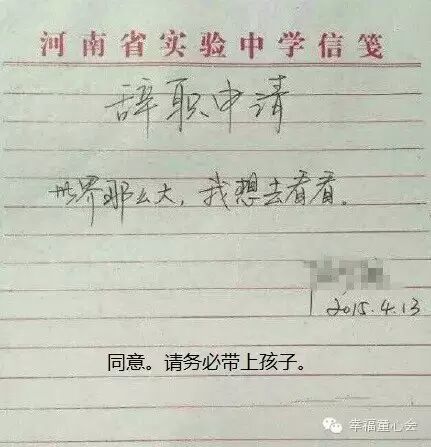 河南省实验中学信笺
辞职申请
世界那么大，我想去看看。
2015.4.13
同意。请务必带上孩子。
幸福童心会